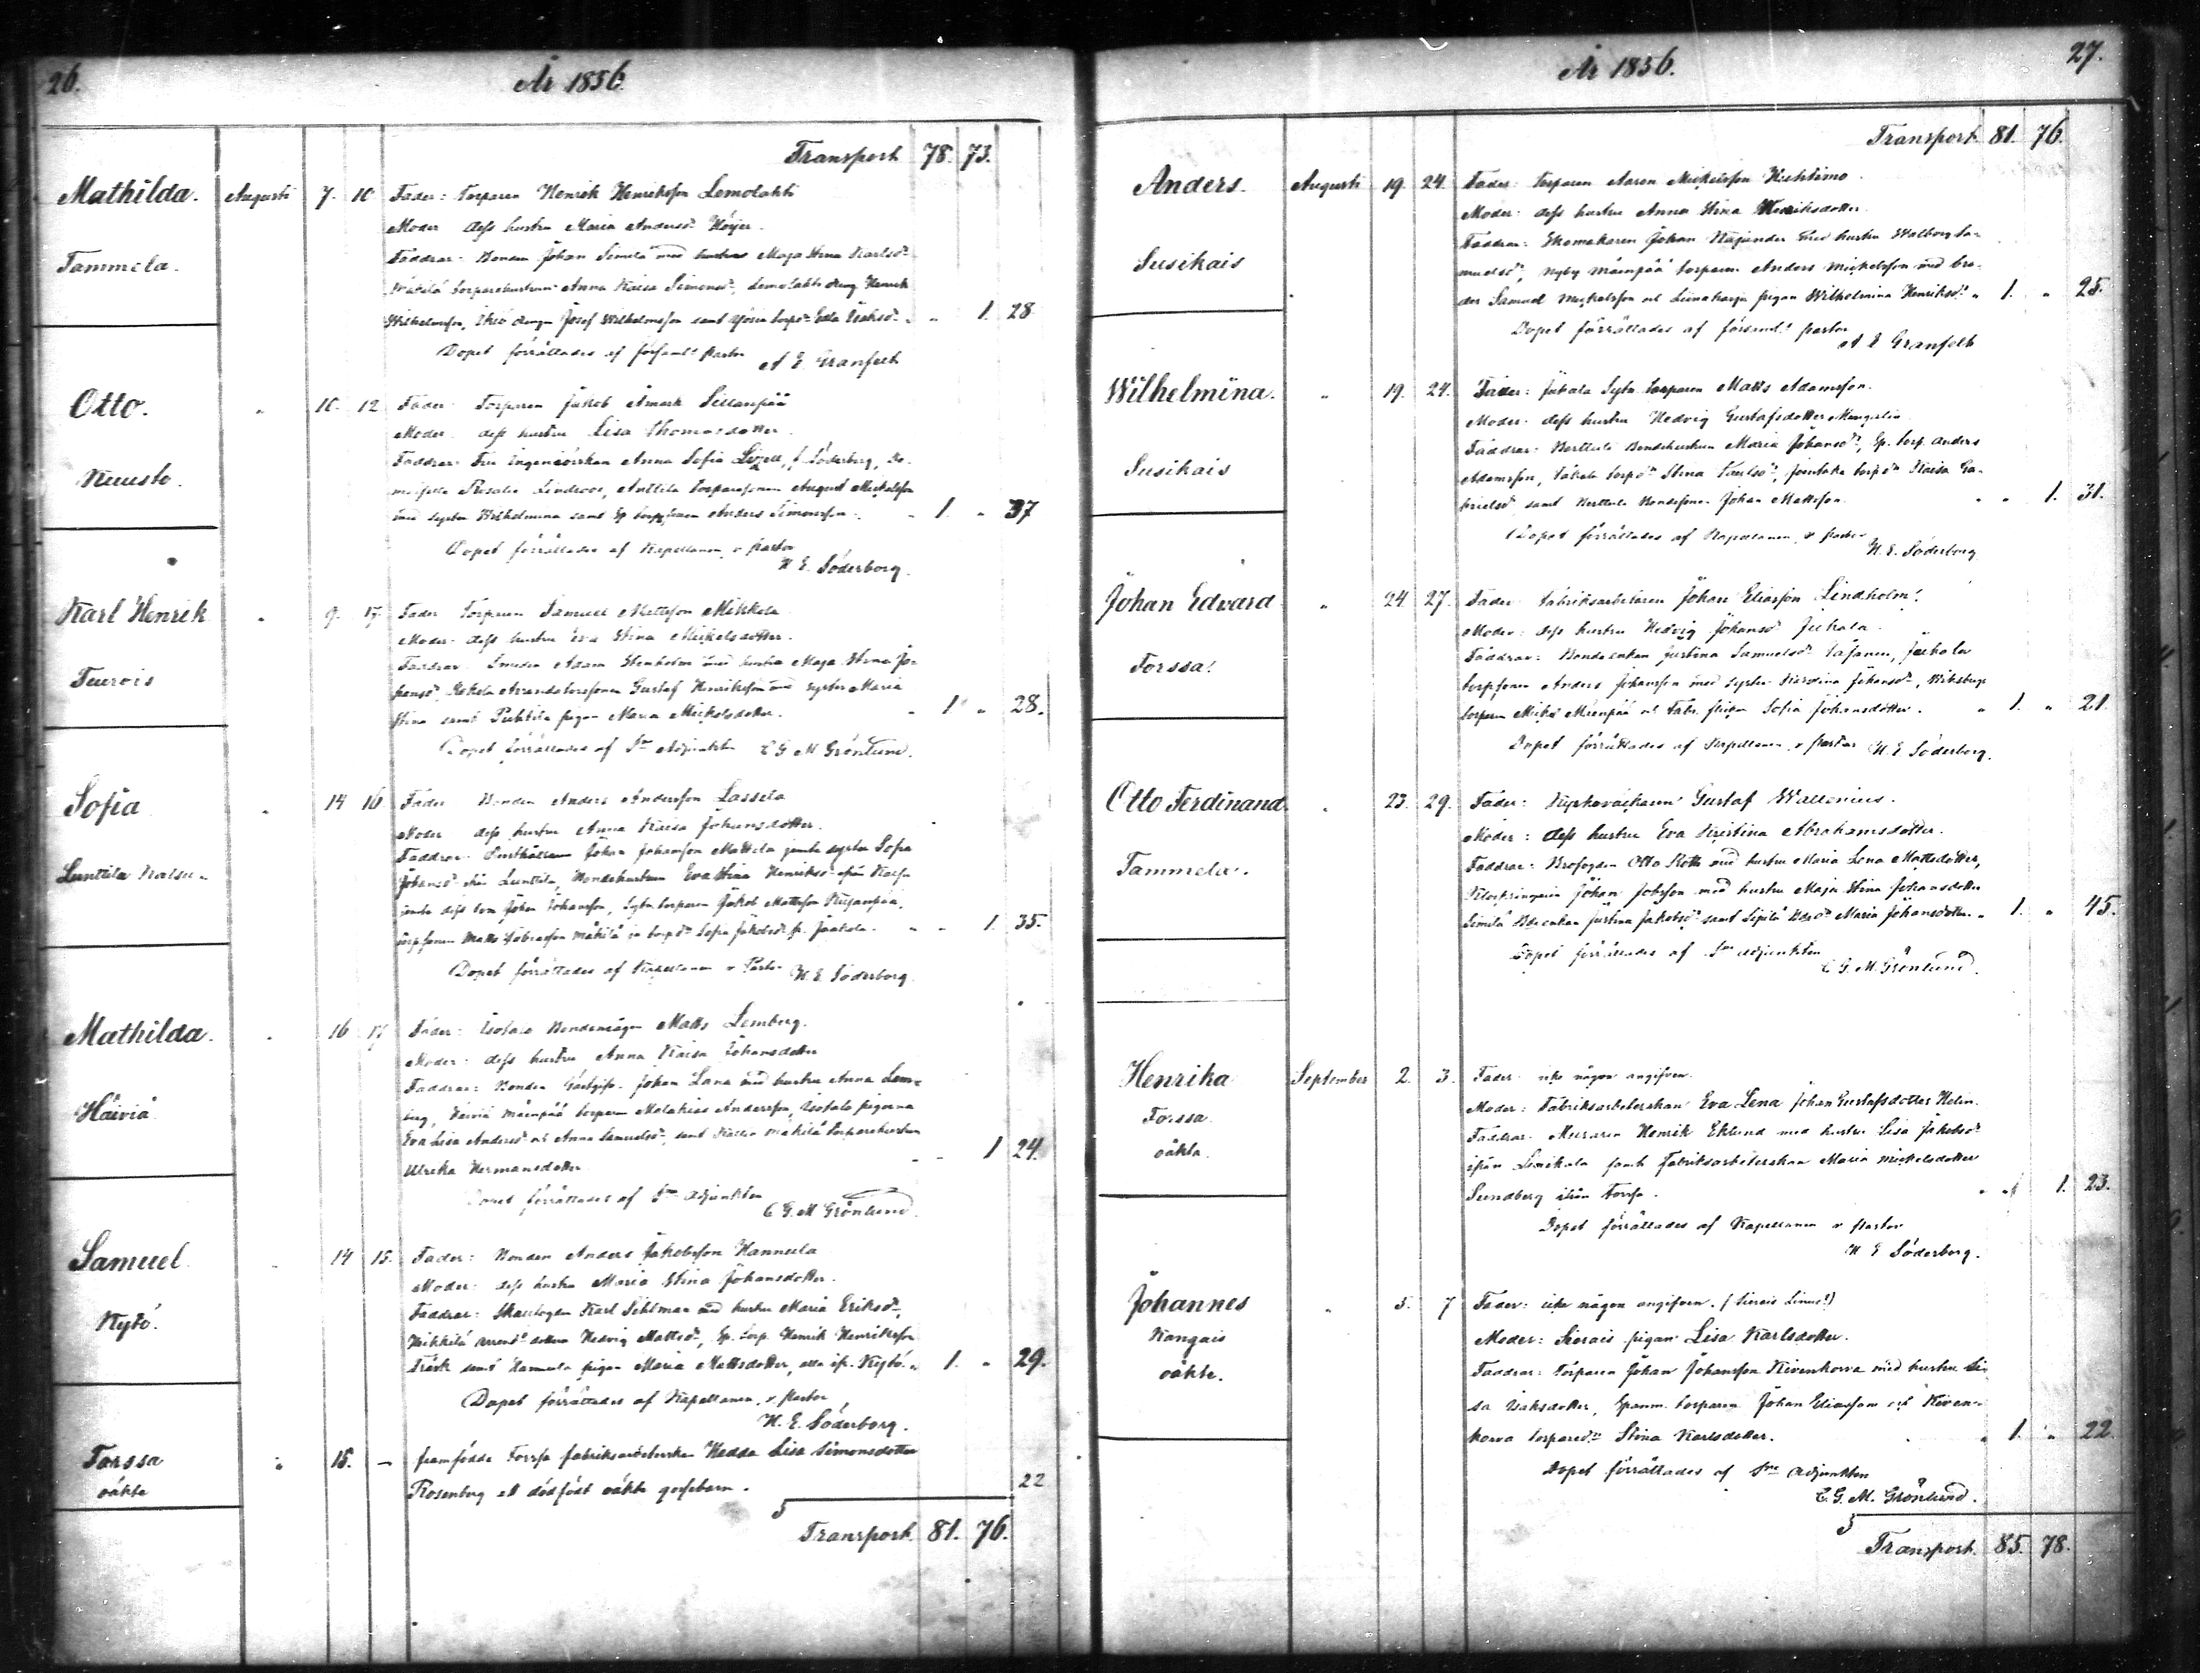 26.
År 1856.
Transport 78. 73.
Mathilda. Augusti 7. 10 Fader: Torparen Henrik Henriksson Lemolahti
Moder dess hustru Maria Andersdr Höijer.
Tammela.
Faddrar: Bonden Johan Simila med hustru Maja Stina Karlsdr
Mäkilä torparehustrun Anna Kaisa Simonsdr, Lemolahti dräng Henrik
Wilhelmsson, drengen Josef Wilhelmsson samt 1. 28
Dopet förrättades af församl. Pastor
A E Granfelt
Otto. 10. 12 Fader Torparen Jakob Sillanpää
Moder dess hustru Lisa Thomasdotter.
Faddrar: Fru Ingeniörskan Anna Sofia f. Söderberg, De-
Kuusto.
moiselle Rosalie Lindroos, Anttila torparesonen August Mickelsson
med syster Wilhelmina samt Anders Simonsson. 1. 37
Dopet förrättades af Kapellanen, v. Pastor
H E Söderborg.
Karl Henrik 9. 17. Fader Torparen Samuel Mattsson Mikkola
Moder dess hustru Eva Stina Mickelsdotter.
Tuurois
Faddrar Smeden Adam Stenholm med hustru Maja Stina Jo-
hansdr, Gustaf Henriksson med syster Maria
Stina samt Puhtila pigan Maria Mickelsdotter. 1 28.
Dopet förrättades af Sne Adjunkten C G M Grönlund.
Sofia 14 16 Fader Bonden Anders Andersson Lassila
Moder dess hustru Anna Kaisa Johansdotter.
Faddrar Johan Johansson Mattila jemte syster Sofia
Luntila
Johansdr från Luntila, Bondehustrun Eva Stina Henriksdr
jemte dess son Johan Johansson, torparen Jakob Mattsson
1. 35.
Dopet förrättades af Kapellanen v Pastor H. E. Söderborg.
Mathilda. 16 17 Fader: Isotalo Bondemågen Matts Lemberg.
Moder: dess hustru Anna Kaisa Johansdotter
Faddrar: Bonden Johan Lana med hustru Anna Lem-
Häiviä
berg, Häiviä Mäenpää torparen Malakias Andersson, Isotalo pigorna
Eva Lisa Andersdr och Anna Samuelsdr, samt Mäkilä torparehustrun
Ulrika Hermansdotter. 1 24.
Dopet förrättades af Sne Adjunkten
C G. M Grönlund.
Samuel 14 15. Fader: Bonden Anders Jakobsson Hannula
Moder dess hustru Maria Stina Johansdotter.
Kytö.
Faddrar: Skallfogden Karl Sihlman med hustru Maria Eriksdr,
Mikkilä dotter Hedvig Mattsdr, Sp. torp. Henrik Henriksson
Träsk samt Hannula pigan Maria Mattsdotter, alla ifr. Kytö. 1. 29.
Dopet förrättades af Kapellanen, v. Pastor
H. E. Söderborg.
Forssa 15. — framfödde Forssa fabriksarbeterskan Hedda Lisa Simonsdotter
oäkta
Rosenberg ett dödfödt oäkta gossebarn. 22
Transport. 81. 76.
27.
År 1856.
Transport 81. 76.
Anders. Augusti 19. 24. Fader: Torparen Aaron Mickelsson Huhtimo.
Moder: dess hustru Anna Stina Henriksdotter.
Susikais
Faddrar: Skomakaren Johan Kajander med hustru Walborg Sa-
muelsdr, Nyby Mäenpää torparen Anders Mickelsson med bro-
der Samuel Mickelsson och pigan Wilhelmina Henriksdr 1. 25.
Dopet förrättades af församl. Pastor
A E Granfelt
Wilhelmina. 19. 24. Fader: Jukala Sytn. torparen Matts Adamsson.
Moder: dess hustru Hedvig Gustafsdotter
Susikais
Faddrar: Kerttula Bondehustrun Maria Johansdr, Sp. torp. Anders
Adamsson, Stina Karlsdr, Kaisa Ga-
brielsdr samt Kerttula Bondesonen Johan Mattsson. 1. 31.
Dopet förrättades af Kapellanen, v Pastor
H. E. Söderborg
Johan Edvard 24 27. Fader fabriksarbetaren Johan Eliasson Lindholm.
Moder: dess hustru Hedvig Johansdr Juhala.
Forssa.
Faddrar: Bondeenkan Justina Samuelsdr, Juhala
torpsonen Anders Johansson med syster Karolina Johansdr, Wiksberg
torparen Mickel Mäenpää och fabr. flickan Sofia Johansdotter. 1. 21.
Dopet förrättades af Kapellanen v Pastor H. E Söderborg.
Otto Ferdinand 23. 29. Fader: Kyrkoväktaren Gustaf Wallenius.
Moder: dess hustru Eva Kristina Abrahamsdotter.
Tammela.
Faddrar: Brofogden Otto Roth med hustru Maria Lena Mattsdotter,
Klockringaren Johan Jobsson med hustru Maja Stina Johansdotter
Similä Bdeenkan Justina Jakobsdr samt Sipilä Maria Johansdotter. 1. 45.
Dopet förrättades af Sne Adjunkten
C. G. M. Grönlund.
Henrika September 2. 3. Fader icke någon angifven.
Moder: Fabriksarbeterskan Eva Lena Johan Gustafsdotter Helin.
Forssa.
Faddrar: Muraren Henrik Eklund med hustru Lisa Jakobsdr
oäkta.
ifrån Linikkala samt Fabriksarbeterskan Maria Mickelsdotter
Sundberg ifrån Forssa. 1. 23.
Dopet förrättades af Kapellanen v Pastor
H E Söderborg.
Johannes 5. 7 Fader: icke någon angifven.
Moder: Sierais pigan Lisa Karlsdotter.
Kangais
Faddrar: Torparen Johan Johansson Kivenkorva med hustru Li-
oäkta.
sa Isaksdotter, torparen Johan Eliasson och Kiven-
korva torparedr Stina Karlsdotter. 1. 22.
Dopet förrättades af Sne Adjunkten
C. G. M. Grönlund.
Transport. 85. 78.